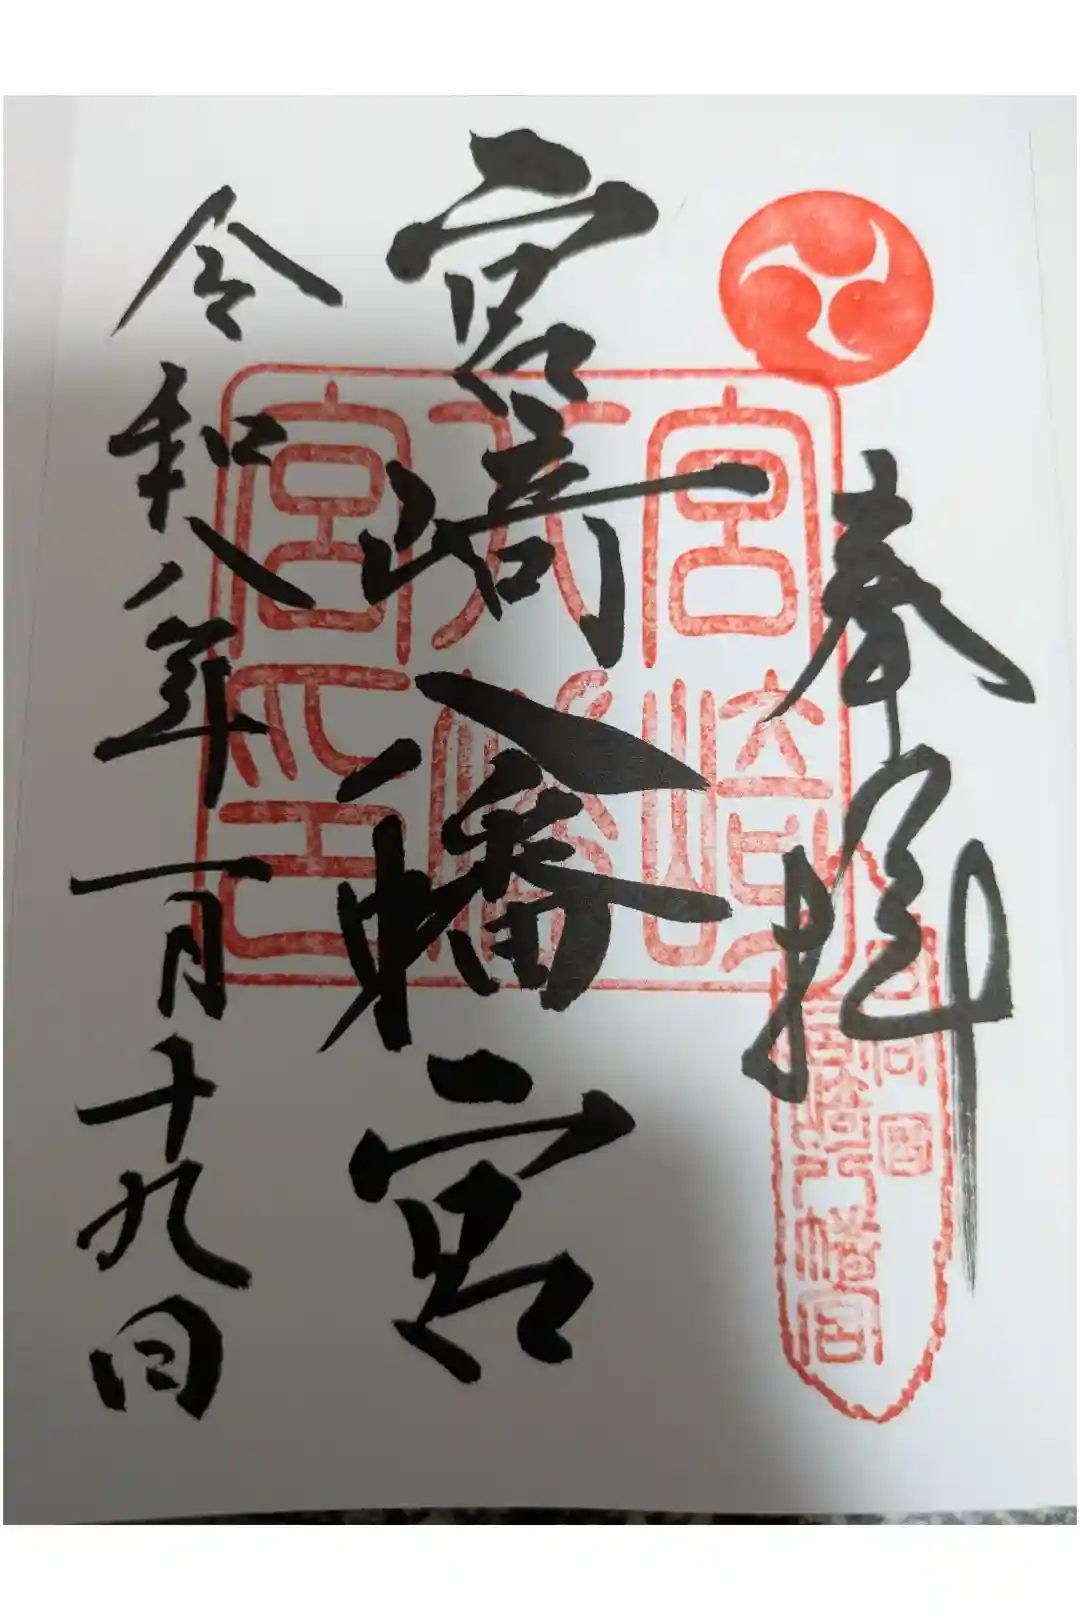 奉拝
宮崎八幡宮
令和八年一月十九日
宮崎
八幡
宮印
八幡宮